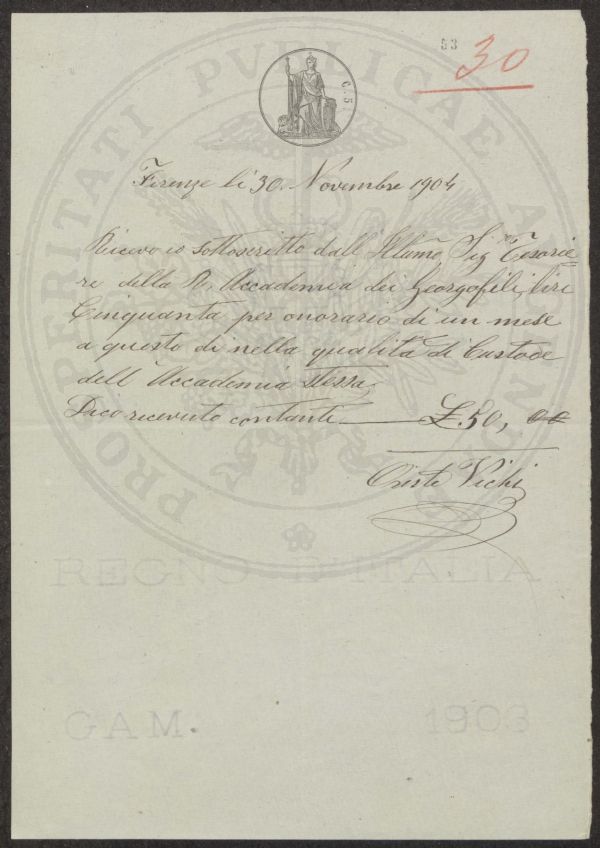 53
30
C. 5
PROSPERITATI PUBLICAE AUGENDAE
Firenze li 30. Novembre 1904
Ricevo io Sottoscritto dall'Illumo. Sig. Tesorie=
re della R. Accademia dei Georgofili, liri
Cinquanta per onorario di un mese
a questo di nella qualità di Custode
dell'Accademia stessa,
Dico ricevuto contanti £.50, 00
Oreste Vichi
REGNO D'ITALIA
GAM. 1903